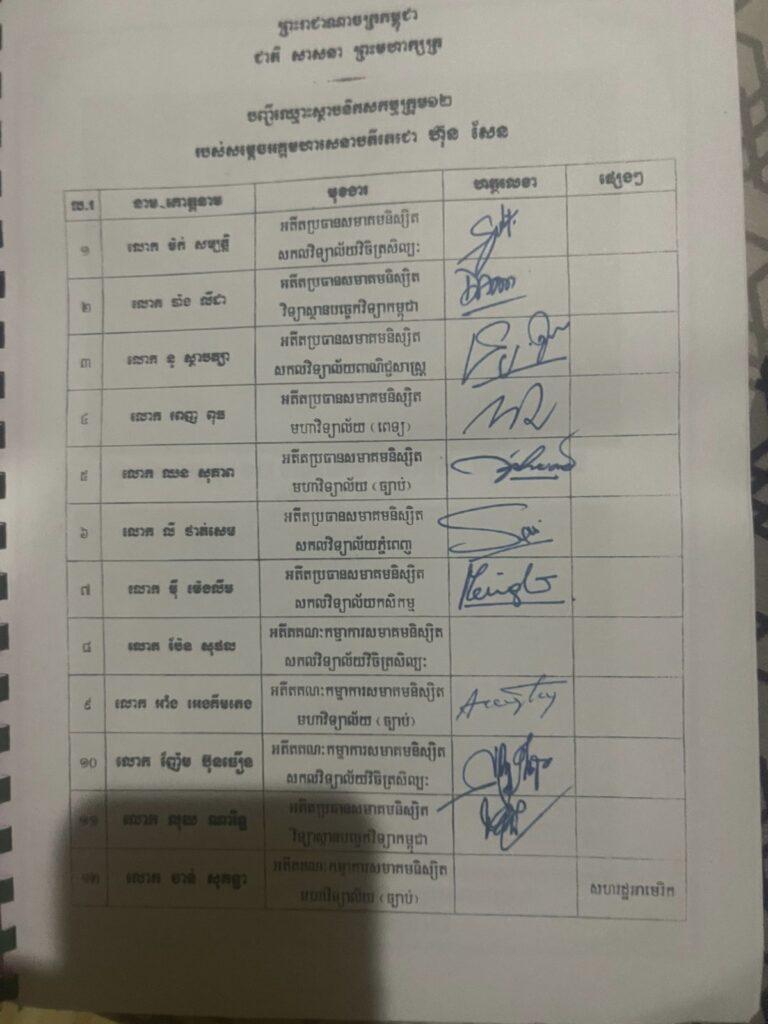 ព្រះរាជាណាចក្រកម្ពុជា
ជាតិ សាសនា ព្រះមហាក្សត្រ
បញ្ជីឈ្មោះស្ថាបនិកសកម្មក្រុម១២
របស់សម្តេចអគ្គមហាសេនាបតីតេជោ ហ៊ុន សែន
ល.រ នាម-គោត្តនាម មុខងារ ហត្ថលេខា ផ្សេងៗ
១ លោក ម៉ក់ សម្បត្តិ អតីតប្រធានសមាគមនិស្សិត
សកលវិទ្យាល័យវិចិត្រសិល្បៈ
២ លោក លីដា អតីតប្រធានសមាគមនិស្សិត
វិទ្យាស្ថានបច្ចេកវិទ្យាកម្ពុជា
៣ លោក នូ ស្ថាបត្យា អតីតប្រធានសមាគមនិស្សិត
សកលវិទ្យាល័យពាណិជ្ជសាស្ត្រ
៤ លោក ពេញ អតីតប្រធានសមាគមនិស្សិត
មហាវិទ្យាល័យ (ពេទ្យ)
៥ លោក ឈន សុភាព អតីតប្រធានសមាគមនិស្សិត
មហាវិទ្យាល័យ (ច្បាប់)
៦ លោក លី អតីតប្រធានសមាគមនិស្សិត
សកលវិទ្យាល័យភ្នំពេញ
៧ លោក ម៉ី ម៉េងលីម អតីតប្រធានសមាគមនិស្សិត
សកលវិទ្យាល័យកសិកម្ម
៨ លោក ប៉ែន សុផល អតីតគណៈកម្មាការសមាគមនិស្សិត
សកលវិទ្យាល័យវិចិត្រសិល្បៈ
៩ លោក អតីតគណៈកម្មាការសមាគមនិស្សិត
មហាវិទ្យាល័យ (ច្បាប់)
១០ លោក ញ៉ែម ប៊ុនធឿន អតីតគណៈកម្មាការសមាគមនិស្សិត
សកលវិទ្យាល័យវិចិត្រសិល្បៈ
១១ លោក លុយ ណារិទ្ធ អតីតប្រធានសមាគមនិស្សិត
វិទ្យាស្ថានបច្ចេកវិទ្យាកម្ពុជា
១២ លោក ចាន់ សុគន្ធា អតីតគណៈកម្មាការសមាគមនិស្សិត
មហាវិទ្យាល័យ (ច្បាប់) សហរដ្ឋអាមេរិក